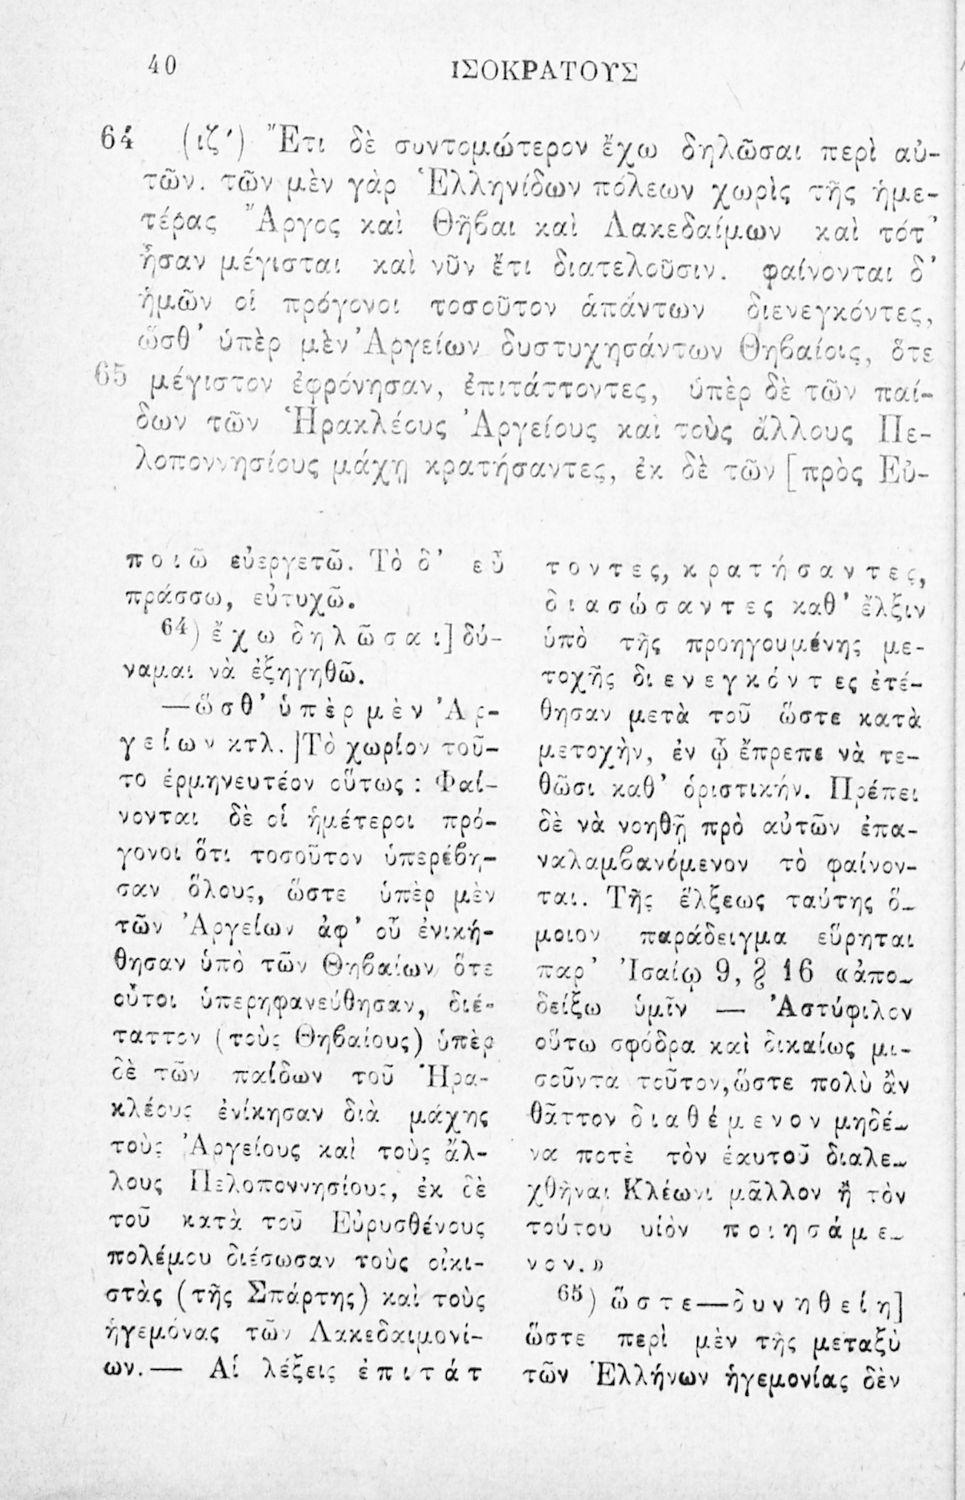 40
ΙΣΟΚΡΑΤΟΥΣ
64 (ιζ΄) Ἔτι δὲ συντομώτερον ἔχω δηλῶσαι περὶ αὐ-
τῶν. τῶν μὲν γὰρ Ἑλληνίδων πόλεων χωρὶς τῆς ἡμε-
τέρας Ἄργος καὶ Θῆβαι καὶ Λακεδαίμων καὶ τότ’
ἦσαν μέγισται καὶ νῦν ἔτι διατελοῦσιν. φαίνονται δ’
ἡμῶν οἱ πρόγονοι τοσοῦτον ἁπάντων διενεγκόντες,
ὥσθ’ ὑπὲρ μὲν Ἀργείων δυστυχησάντων Θηβαίοις, ὅτε
65 μέγιστον ἐφρόνησαν, ἐπιτάττοντες, ὑπὲρ δὲ τῶν παί-
δων τῶν Ἡρακλέους Ἀργείους καὶ τοὺς ἄλλους Πε-
λοποννησίους μάχῃ κρατήσαντες, ἐκ δὲ τῶν [πρὸς Εὐ-
ποιῶ εὐεργετῶ. Τὸ δ’ εὖ
πράσσω, εὐτυχῶ.
64) ἔχω δηλῶσαι] δύ-
ναμαι νὰ ἐξηγηθῶ.
—ὥσθ’ ὑπὲρ μὲν Ἀρ-
γείων κτλ.]Τὸ χωρίον τοῦ-
το ἑρμηνευτέον οὕτως : Φαί-
νονται δὲ οἱ ἡμέτεροι πρό-
γονοι ὅτι τοσοῦτον ὑπερέβη-
σαν ὅλους, ὥστε ὑπὲρ μὲν
τῶν Ἀργείων ἀφ’ οὗ ἐνική-
θησαν ὑπὸ τῶν Θηβαίων ὅτε
οὗτοι ὑπερηφανεύθησαν, διέ-
ταττον (τοὺς Θηβαίους) ὑπὲρ
δὲ τῶν παίδων τοῦ Ἡρα-
κλέους ἐνίκησαν διὰ μάχης
τοὺς Ἀργείους καὶ τοὺς ἄλ-
λους Πελοποννησίους, ἐκ δὲ
τοῦ κατὰ τοῦ Εὐρυσθένους
πολέμου διέσωσαν τοὺς οἰκι-
στὰς (τῆς Σπάρτης) καὶ τοὺς
ἡγεμόνας τῶν Λακεδαιμονί-
ων.— Αἱ λέξεις ἐπιτάτ
τοντες, κρατήσαντες,
διασώσαντες καθ’ ἕλξιν
ὑπὸ τῆς προηγουμένης με-
τοχῆς διενεγκόντες ἐτέ-
θησαν μετὰ τοῦ ὥστε κατὰ
μετοχὴν, ἐν ᾧ ἔπρεπε νὰ τε-
θῶσι καθ’ ὁριστικήν. Πρέπει
δὲ νὰ νοηθῇ πρὸ αὐτῶν ἐπα-
ναλαμβανόμενον τὸ φαίνον-
ται. Τῆς ἕλξεως ταύτης ὅ-
μοιον παράδειγμα εὕρηται
παρ’ Ἰσαίῳ 9, § 16 «ἀπο-
δείξω ὑμῖν — Ἀστύφιλον
οὕτω σφόδρα καὶ δικαίως μι-
σοῦντα τοῦτον,ὥστε πολὺ ἂν
θᾶττον διαθέμενον μηδέ-
να ποτὲ τὸν ἑαυτοῦ διαλε-
χθῆναι Κλέωνι μᾶλλον ἢ τὸν
τούτου υἱὸν ποιησάμε-
νον.»
65) ὥστε—δυνηθείη]
ὥστε περὶ μὲν τῆς μεταξὺ
τῶν Ἑλλήνων ἡγεμονίας δὲν